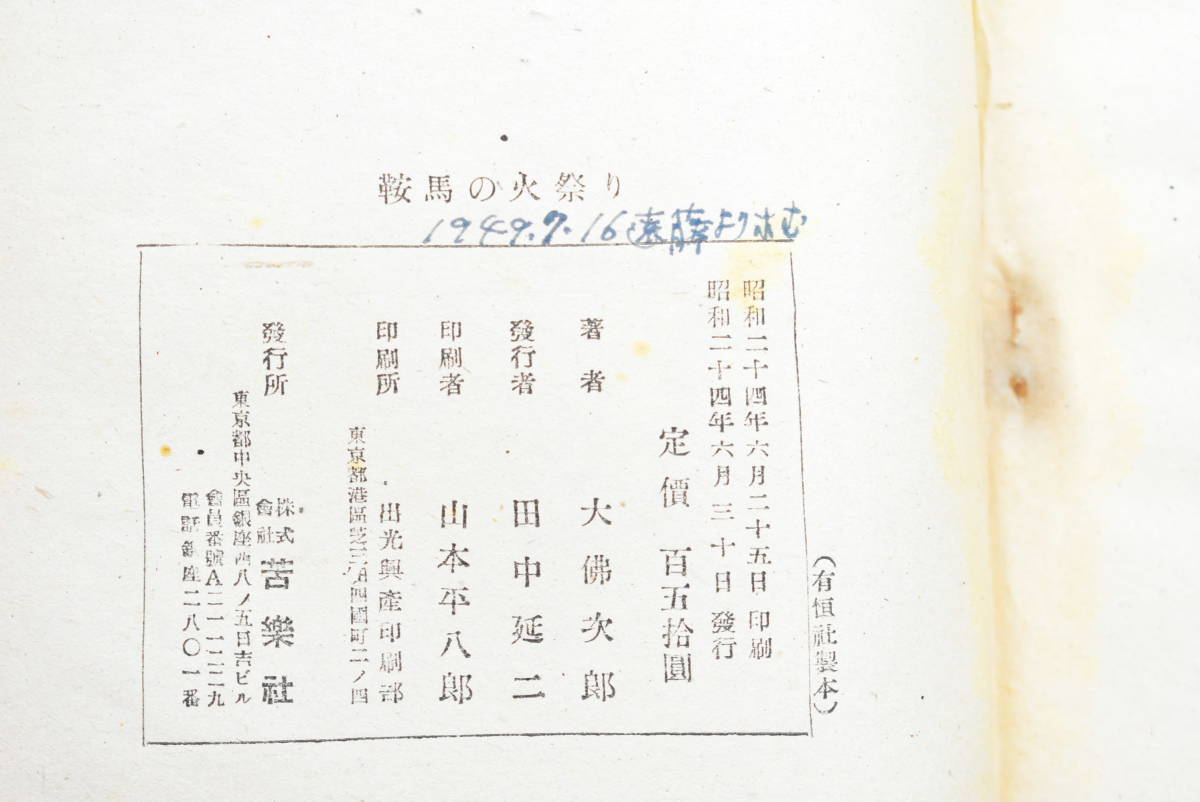 鞍馬の火祭り
1949.7.16 遠藤より求む
昭和二十四年六月二十五日 印刷
昭和二十四年六月三十日 發行
定價 百五拾圓
著者 大佛次郎
發行者 田中延二
印刷者 山本平八郎
印刷所 出光興產印刷部
東京都港區芝三田四國町二ノ四
發行所 株式會社 苦樂社
東京都中央區銀座西八ノ五日吉ビル
會員番號A二一一二二九
電話銀座二八〇一番
(有恒社製本)